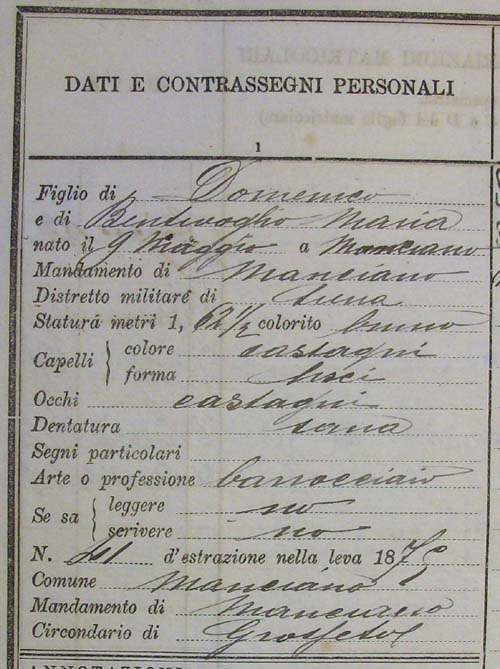 DATI E CONTRASSEGNI PERSONALI
1
Figlio di Domenico
e di Bentivoglio Maria
nato il 9 Maggio a Manciano
Mandamento di Manciano
Distretto militare di Siena
Statura metri 1, 62 1/2 colorito bruno
Capelli colore castagni
forma lisci
Occhi castagni
Dentatura sana
Segni particolari
Arte o professione barrocciaio
Se sa leggere no
scrivere no
N. 41 d'estrazione nella leva 187
Comune Manciano
Mandamento di Manciano
Circondario di Grosseto
ANNOTAZIONI